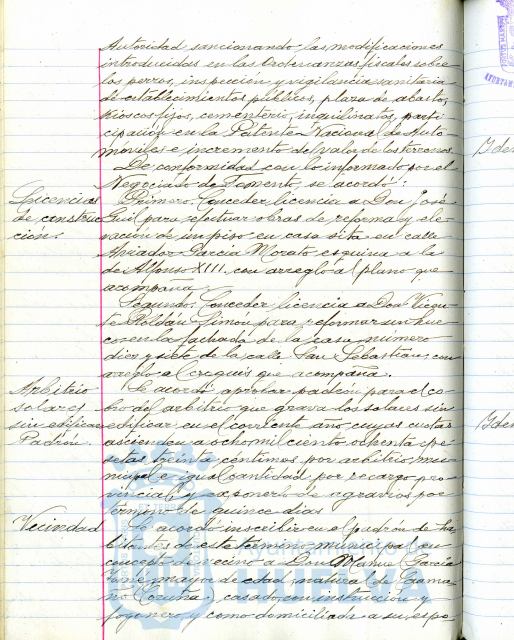 Autoridad sancionando las modificaciones
introducidas en las Ordenanzas fiscales sobre
los perros, inspección y vigilancia sanitaria
de establecimientos públicos, plaza de abastos,
Kioscos fijos, cementerio, inquilinatos, parti-
cipación en la Patente Nacional de Auto-
móviles e incremento del valor de los terrenos.
De conformidad con lo informado por el
Negociado de Fomento, se acordó:
Licencias
de construc
ción.
Primero. Conceder licencia a Don José
Guil para efectuar obras de reforma y ele-
vación de un piso en casa sita en calle
Aviador García Morato esquina a la
de Alfonso XIII. con arreglo al plano que
acompaña.
Segundo. Conceder licencia a Don Vicen-
te Roldán Simón para reformar un hue-
co en la fachada de la casa número
diez y siete de la calle San Sebastián, con
arreglo al croquis que acompaña.
Arbitrio
solares
sin edificar
Padrón.
Se acordó aprobar padrón para el co-
bro del arbitrio que grava los solares sin
edificar en el corriente año, cuyas cuotas
ascienden a ocho mil ciento ochenta pe-
setas treinta céntimos por arbitrio muni-
cipal e igual cantidad por recargo pro-
vincial y exponerlo de agravios por
término de quince días
Vecindad
Se acordó inscribir en el padrón de ha-
bitantes de este término municipal en
concepto de vecino a Don Manuel García
mayor de edad, natural de
(Coruña), casado, con instrucción y
fogonero, y como domiciliada a su espo-
Iden
Iden
HUELVA